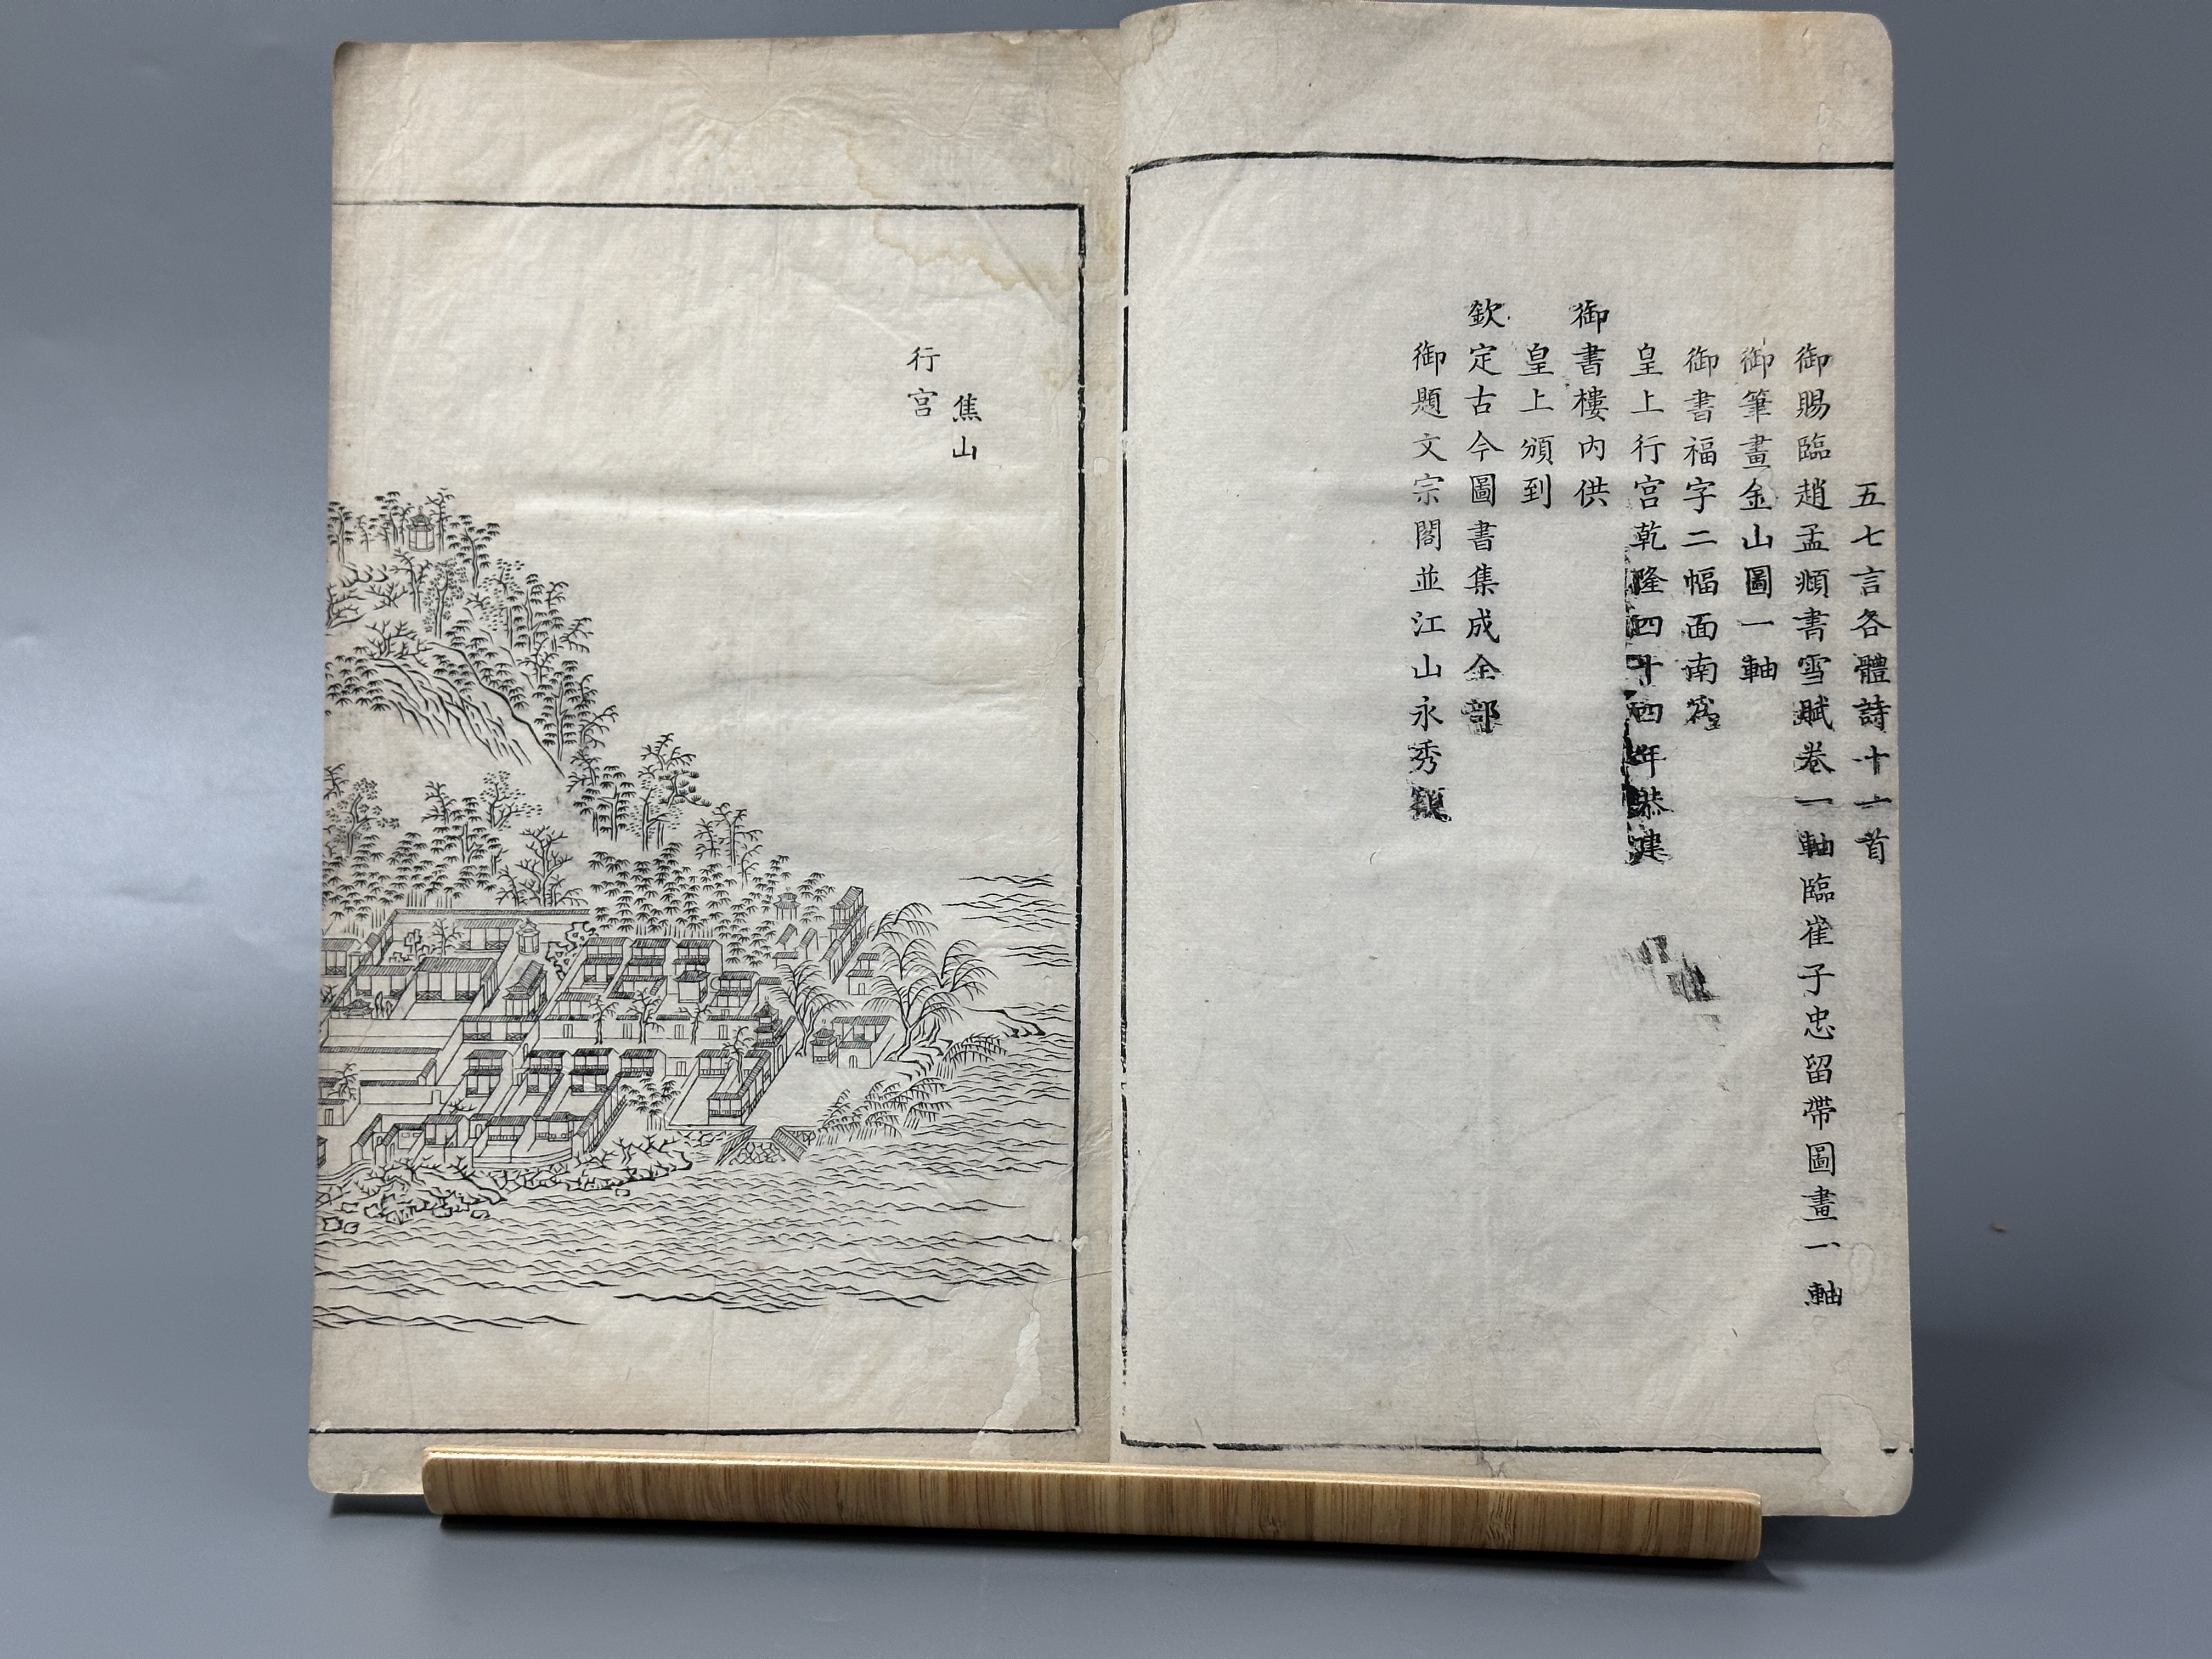 五七言各體詩十一首
御賜臨趙孟頫書雪賦卷一軸臨崔子忠留帶圖畫一軸
御筆畫金山圖一軸
御書福字二幅面南
皇上行宮乾隆四十四年恭建
御書樓內供
皇上頒到
欽定古今圖書集成全部
御題文宗閣並江山永秀額
焦山
行宮